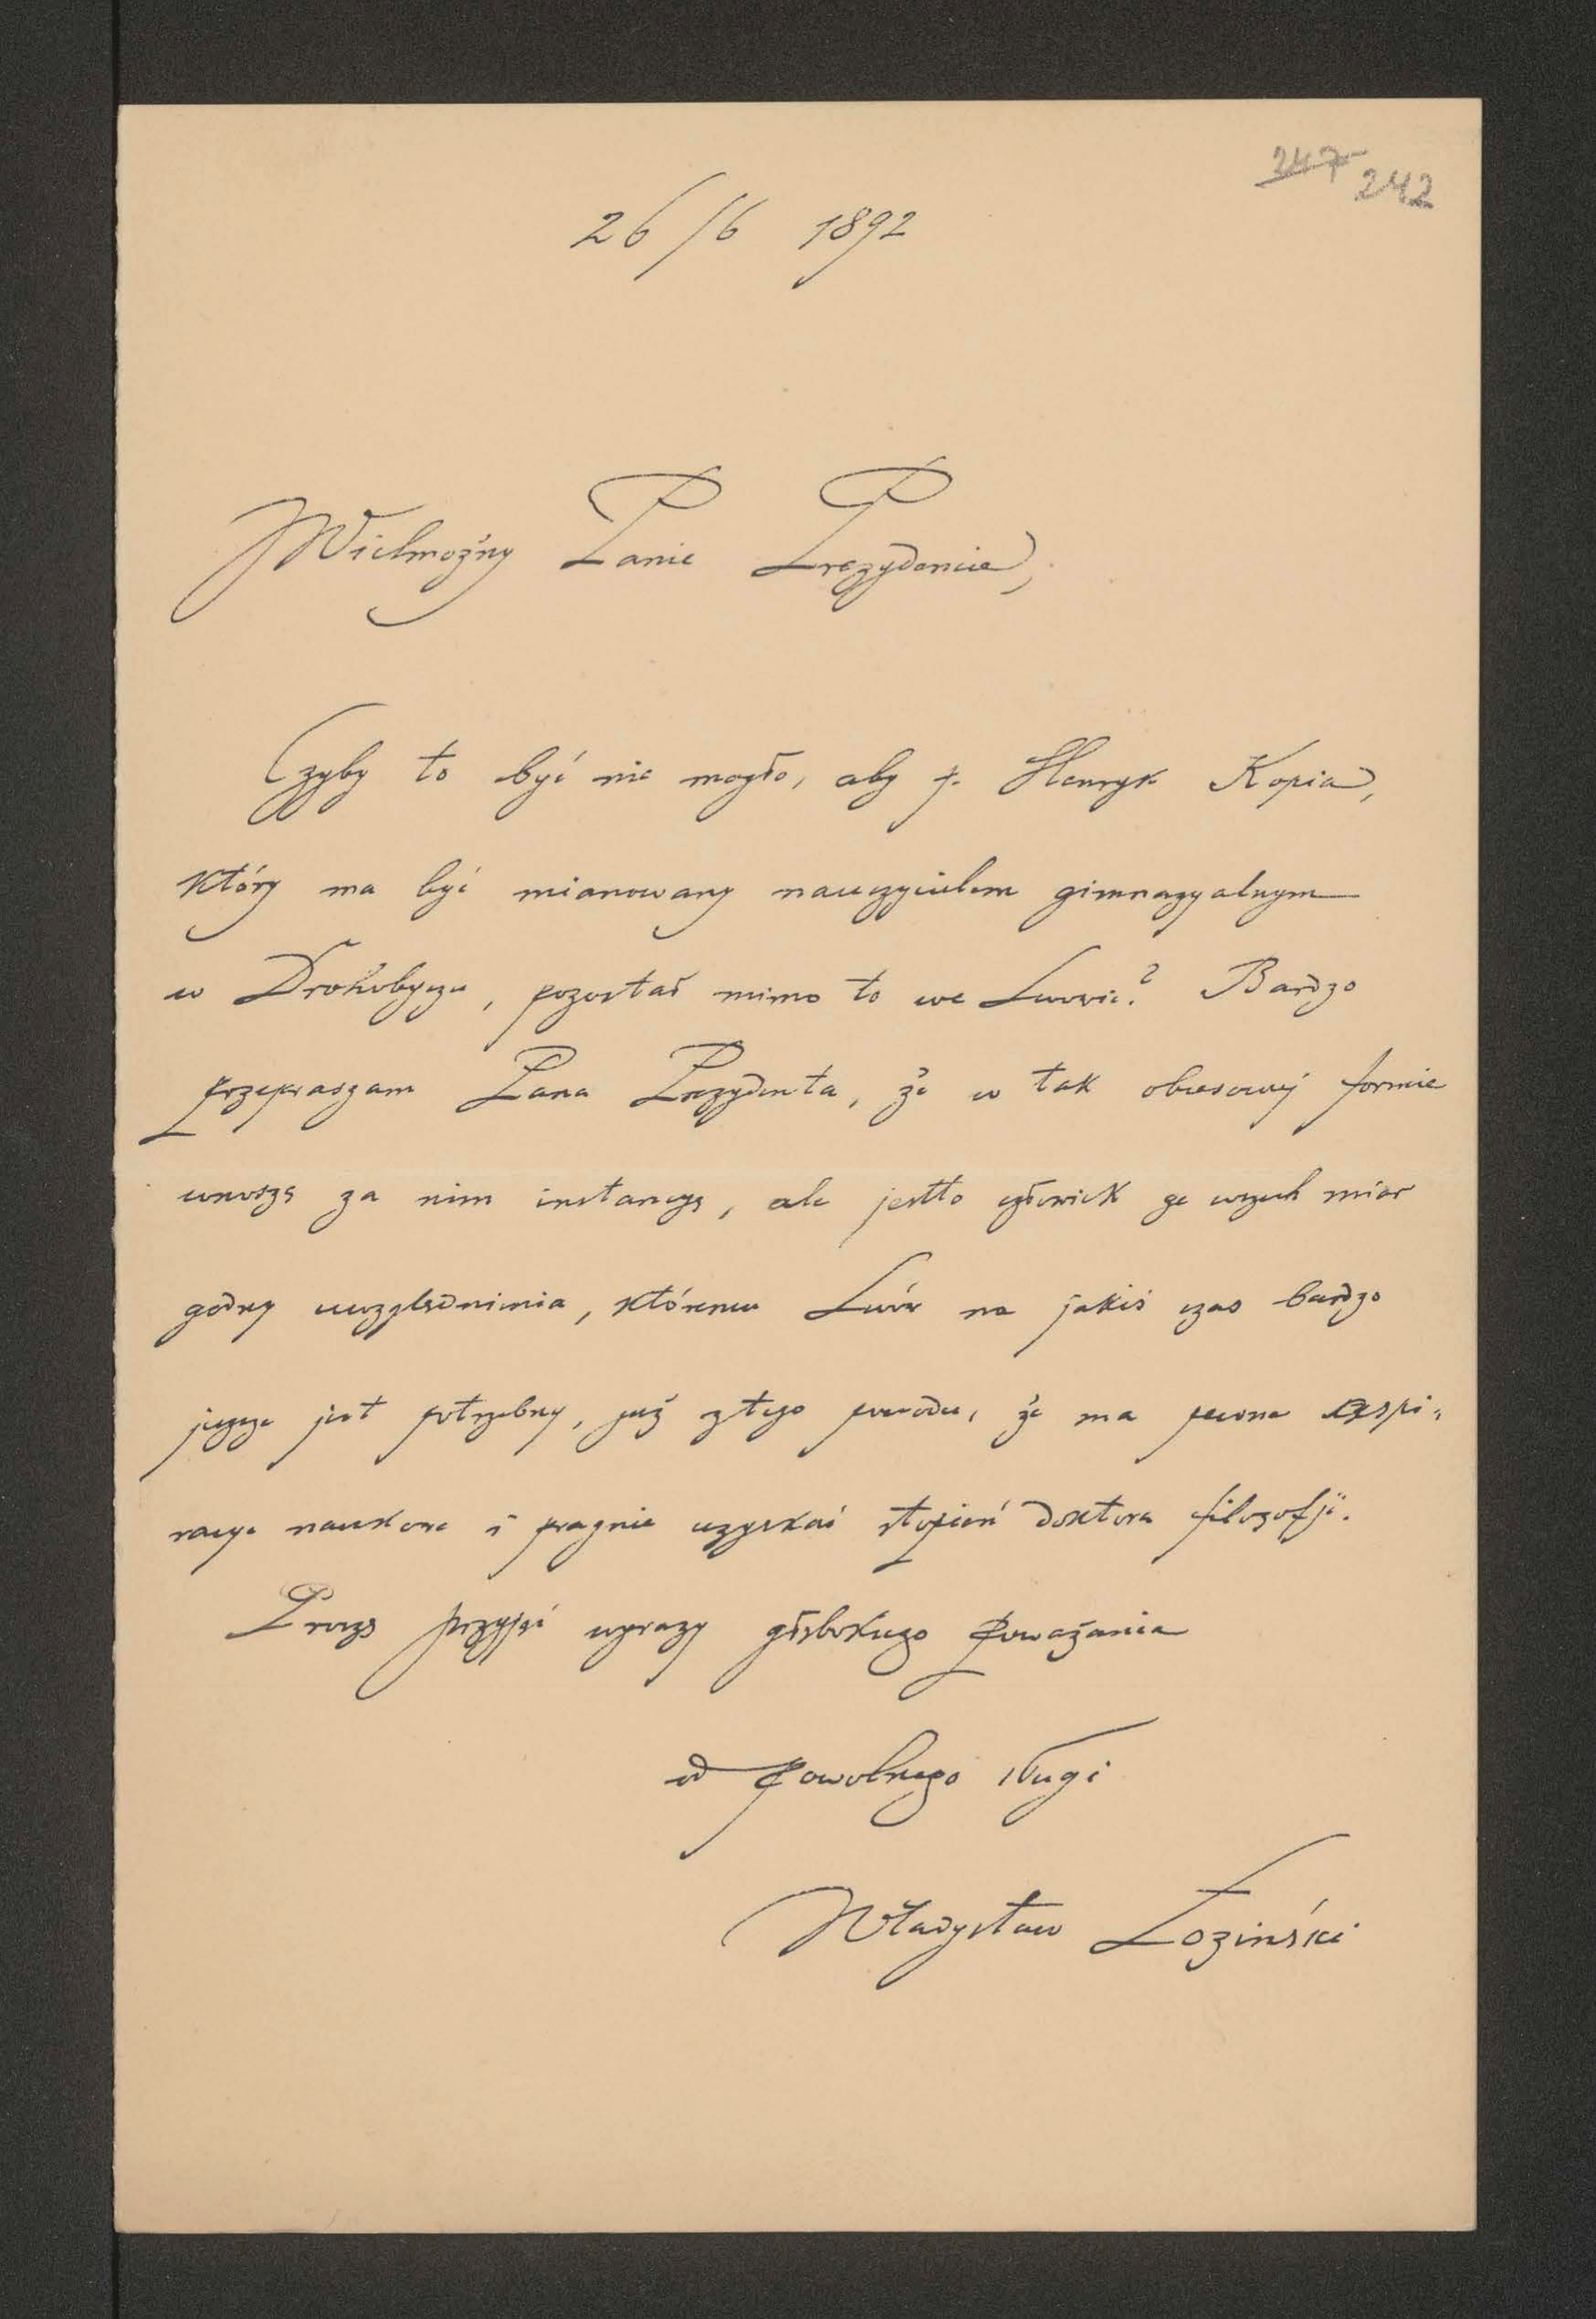 247 242
26/6 1892
JWielmożny Panie Prezydencie,
Czyby to być nie mogło, aby p. Henryk Kopia,
który ma być mianowany nauczycielem gimnazyalnym
w Drohobyczu, pozostał mimo to we Lwowie? Bardzo
przepraszam Pana Prezydenta, że w tak obcesowej formie
wnoszę za nim instancyę, ale jestto człowiek ze wszech miar
godny uwzględnienia, któremu Lwów na jakiś czas bardzo
jeszcze jest potrzebny, już z tego powodu, że ma pewne aspi-
racye naukowe i pragnie uzyskać stopień doktora filozofji.
Proszę przyjąć wyrazy głębokiego poważania
od powolnego sługi
Władysław Łoziński